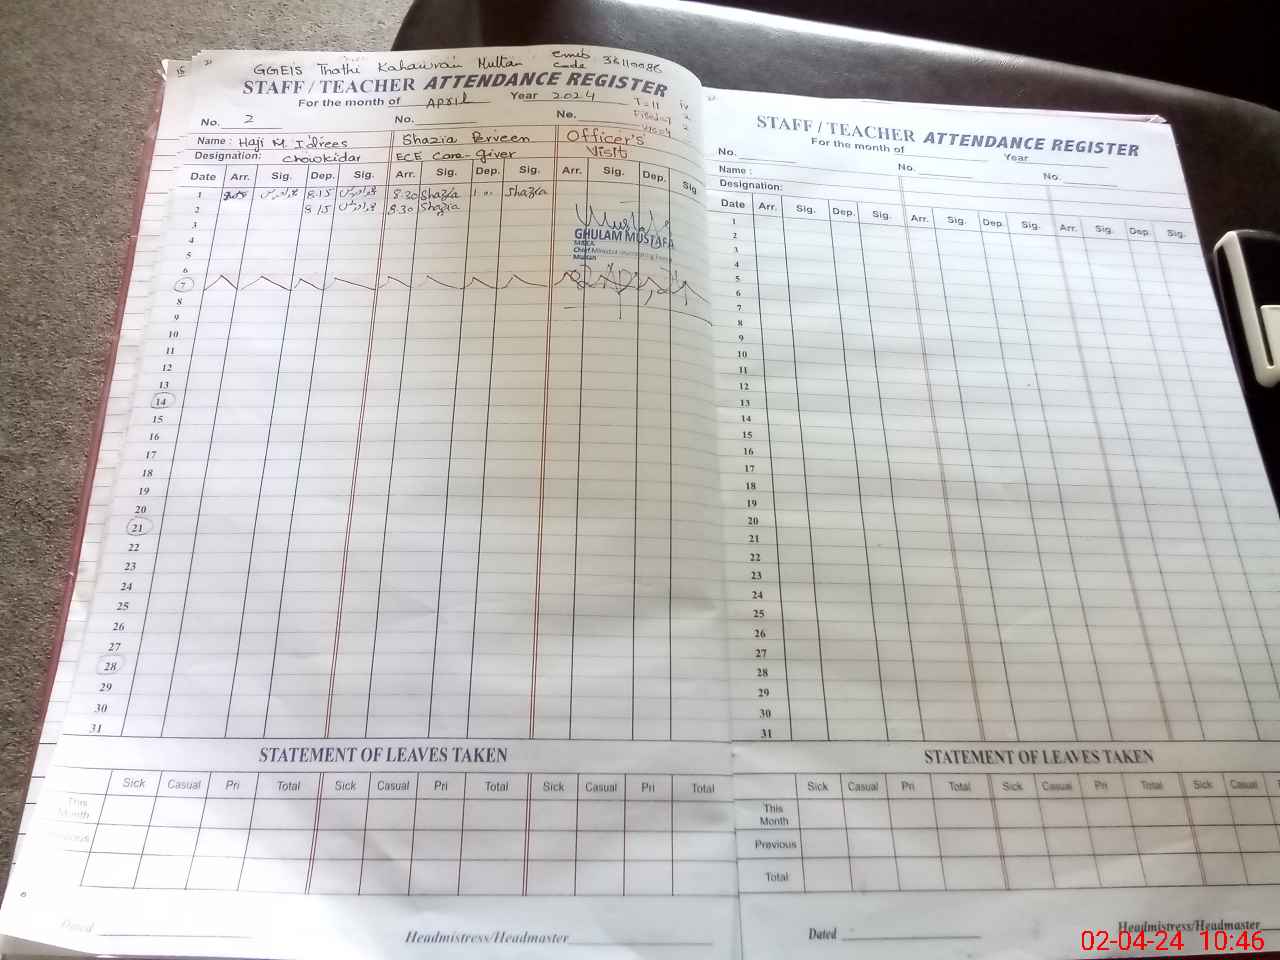 GGEIS Thathi Kahawran Multan emis code 36110086
STAFF / TEACHER ATTENDANCE REGISTER
For the month of April Year 2024
No. 2 No. No.
Name : Haji M. Idrees Shazia Perveen Officer's
Designation: Chowkidar ECE Care-giver Visit
Date Arr. Sig. Dep. Sig. Arr. Sig. Dep. Sig. Arr. Sig. Dep. Sig
1 8.15 8.30 Shazia 1 Shazia
2 8.15 8.30 Shazia
3
4
GHULAM MUSTAFA
5
Multan
6
7
8
9
10
11
12
13
14
15
16
17
18
19
20
21
22
23
24
25
26
27
28
29
30
31
STATEMENT OF LEAVES TAKEN
Sick Casual Pri Total Sick Casual Pri Total Sick Casual Pri Total
This Month
Dated
Headmistress/Headmaster
STAFF / TEACHER ATTENDANCE REGISTER
For the month of Year
No. No. No.
Name :
Designation:
Date Arr. Sig. Dep. Sig. Arr. Sig. Dep. Sig. Arr. Sig. Dep. Sig.
1
2
3
4
5
6
7
8
9
10
11
12
13
14
15
16
17
18
19
20
21
22
23
24
25
26
27
28
29
30
31
STATEMENT OF LEAVES TAKEN
Sick Casual Pri Total Sick Casual Pri Total Sick Casual
This Month
Previous
Total
Dated Headmistress/Headmaster
02-04-24 10:46